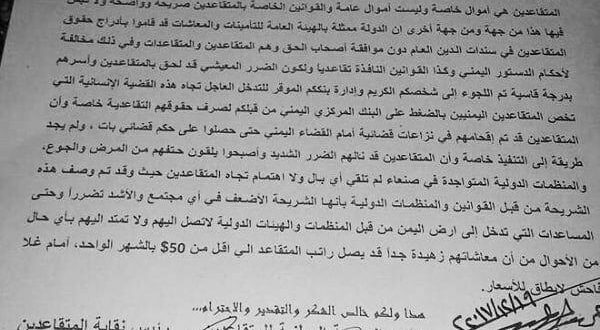 المتقاعدين هي أموال خاصة وليست أموال عامة والقوانين الخاصة بالمتقاعدين صريحة وواضحة ولا لبس
فيها هذا من جهة ومن جهة أخرى إن الدولة ممثلة بالهيئة العامة للتأمينات والمعاشات قد قاموا بأدراج حقوق
المتقاعدين في سندات الدين العام دون موافقة أصحاب الحق وهم المتقاعدين والمتقاعدات وفي ذلك مخالفة
لأحكام الدستور اليمني وكذا القوانين النافذة تقاعدياً ولكون الضرر المعيشي قد لحق بالمتقاعدين وأسرهم
بدرجة قاسية تم اللجوء إلى شخصكم الكريم وإدارة بنككم الموقر للتدخل العاجل تجاه هذه القضية الإنسانية التي
تخص المتقاعدين اليمنيين بالضغط على البنك المركزي اليمني من قبلكم لصرف حقوقهم التقاعدية خاصة وأن
المتقاعدين قد تم إقحامهم في نزاعات قضائية أمام القضاء اليمني حتى حصلوا على حكم قضائي بات ، ولم يجد
طريقة إلى التنفيذ خاصة وأن المتقاعدين قد نالهم الضرر الشديد وأصبحوا يلقون حتفهم من المرض والجوع،
والمنظمات الدولية المتواجدة في صنعاء لم تلقي أي بال ولا اهتمام تجاه المتقاعدين حيث وقد تم وصف هذه
الشريحة من قبل القوانين والمنظمات الدولية بأنها الشريحة الأضعف في أي مجتمع والأشد تضرراً وحتى
المساعدات التي تدخل إلى ارض اليمن من قبل المنظمات والهيئات الدولية لاتصل اليهم ولا تمتد اليهم بأي حال
من الأحوال من أن معاشاتهم زهيدة جداً قد يصل راتب المتقاعد الى اقل من 50$ بالشهر الواحد، أمام غلا
فاحش لايطاق للأسعار.
هذا ولكم خالص الشكر والتقدير والاحترام،،،
٢٠١٧/١٢/١٩
رئيس نقابة المتقاعدين